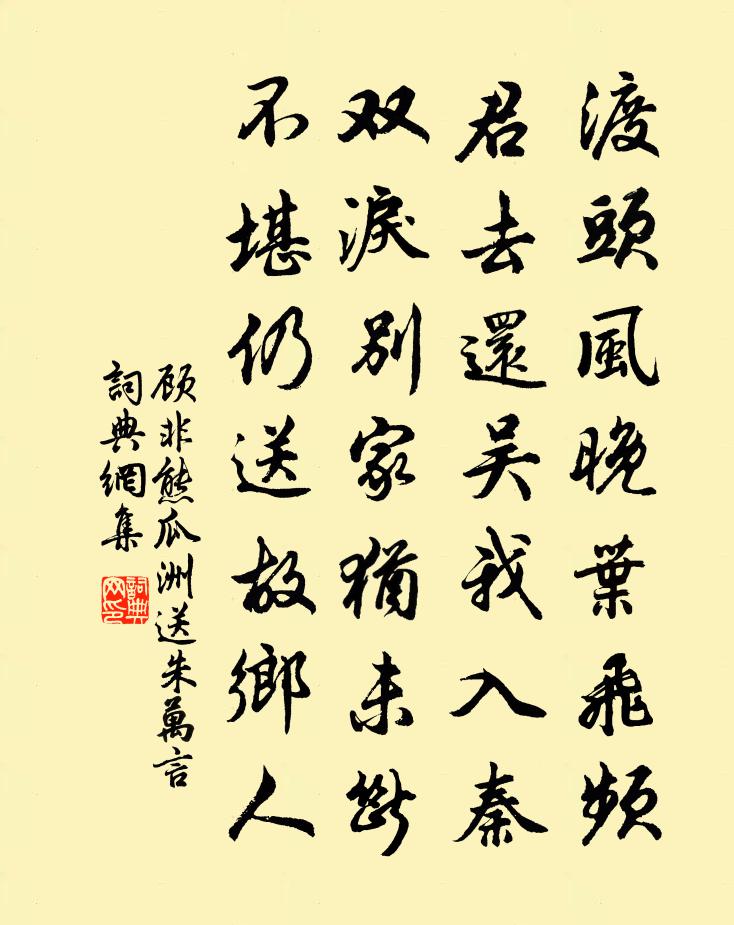 渡頭風晚葉飛頻
君去還吴我入秦
双淚别家猶未斷
不堪仍送故鄉人
顾非熊瓜洲送朱萬言
詞典網集